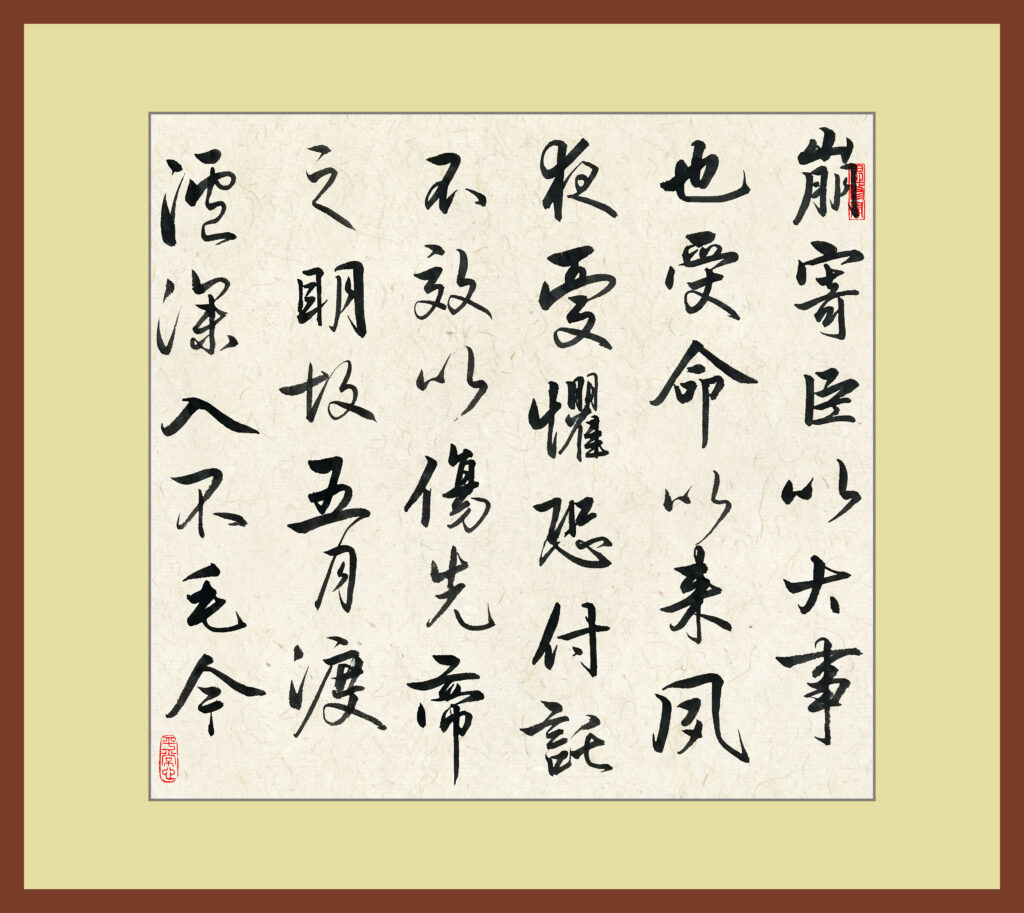 崩寄臣以大事
也受命以来夙
夜憂懼恐付託
不效以傷先帝
之明故五月渡
瀘深入不毛今